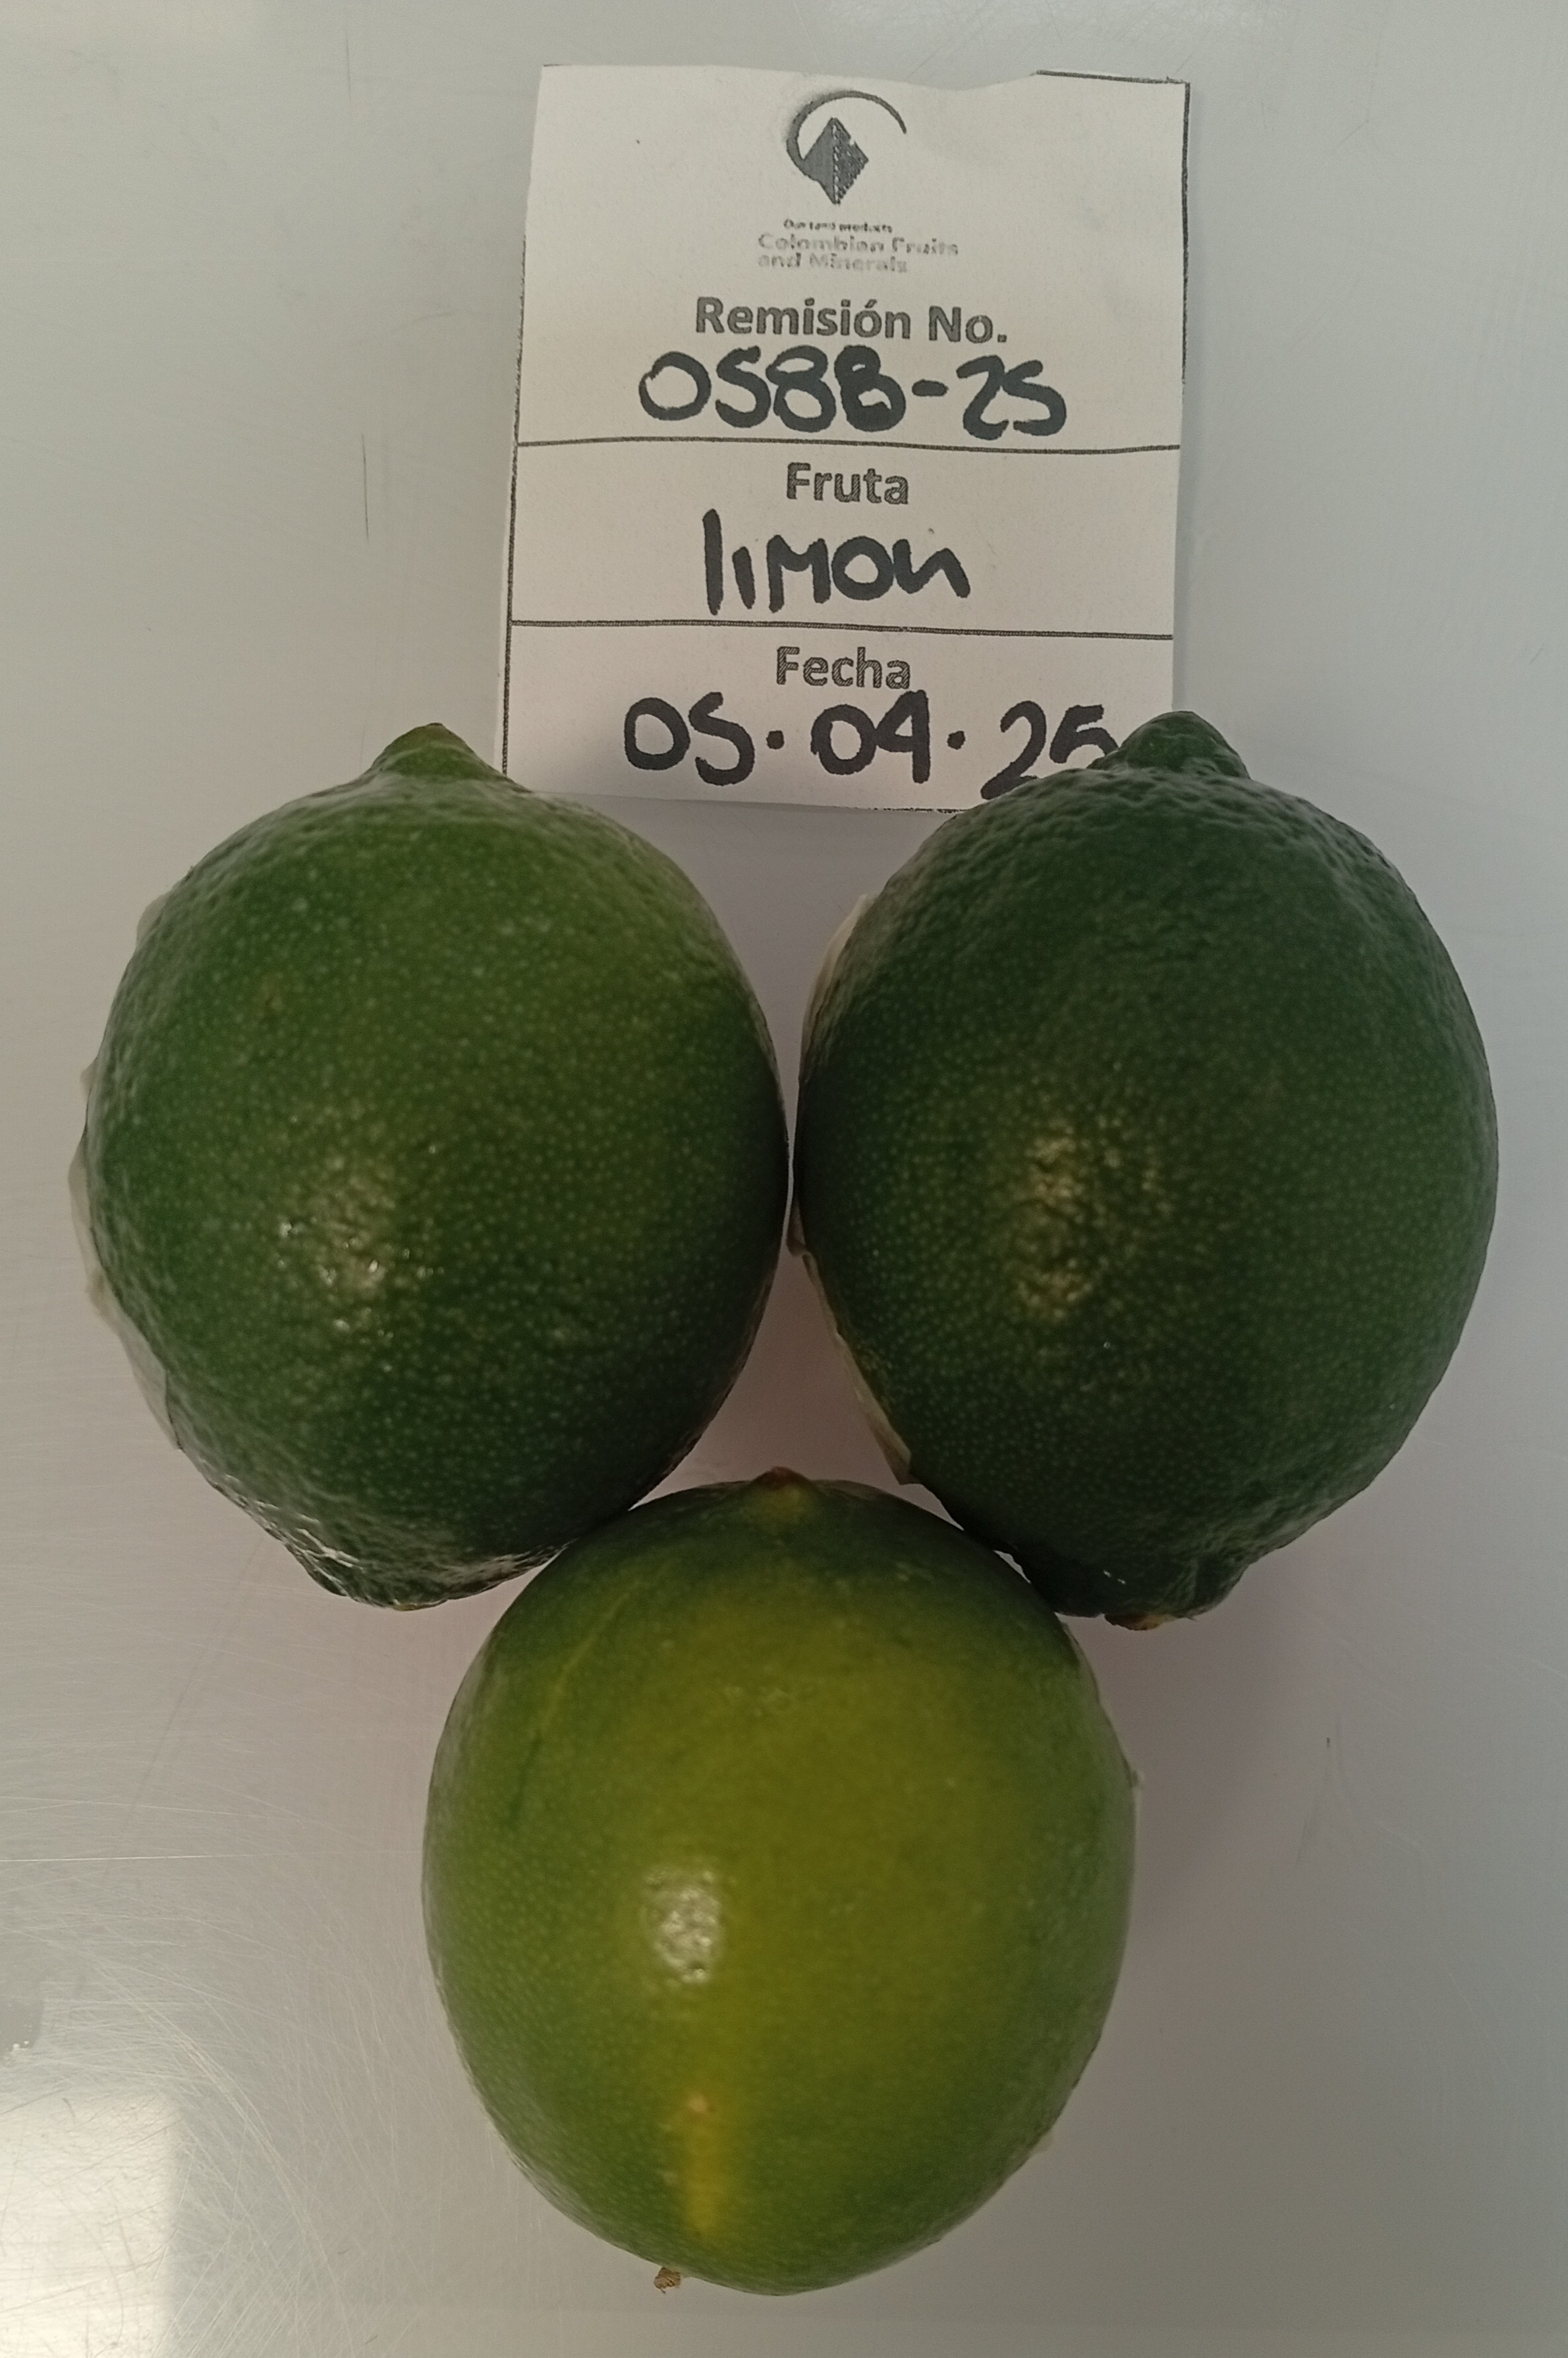 Our land products
Colombian Fruits
and Minerals
Remisión No.
0588-25
Fruta
limon
Fecha
05.04.25